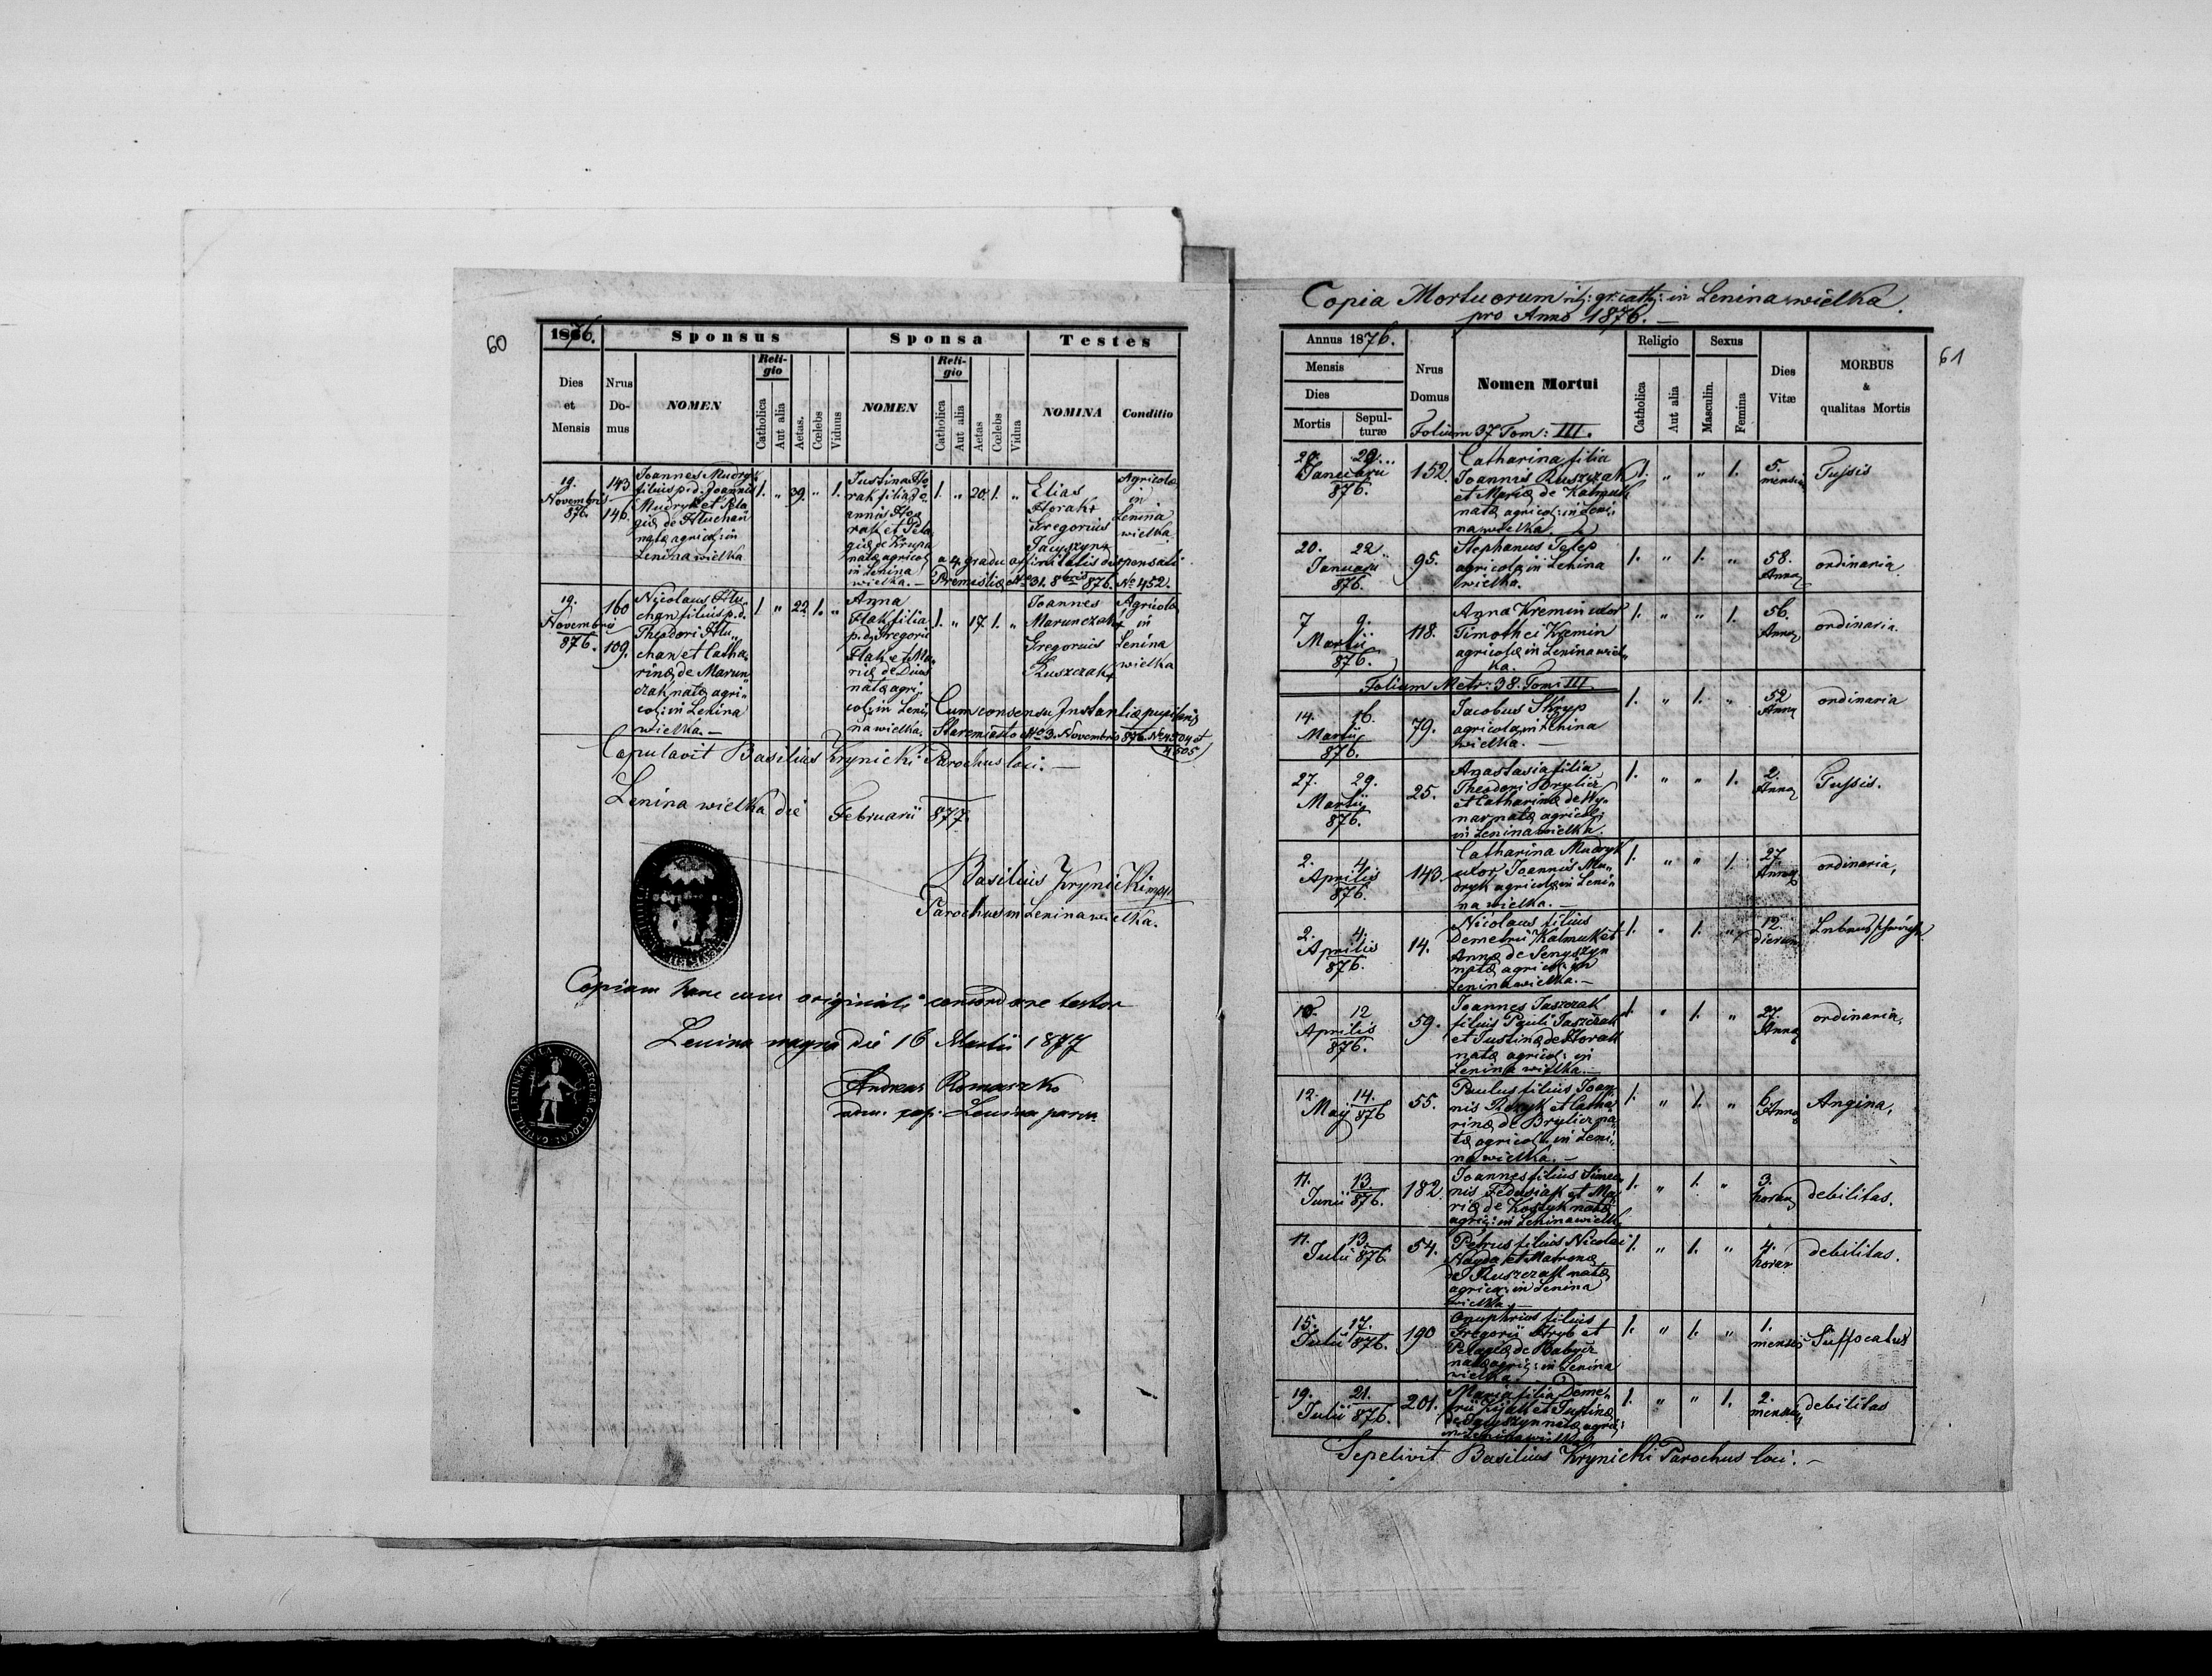 60
1876.
Sponsus
Sponsa
Testes
Dies et Mensis
Nrus Domus
NOMEN
Religio
Catholica
Aut alia
Aetas.
Cœlebs
Viduus
NOMEN
Religio
Catholica
Aut alia
Aetas
Cœlebs
Vidua
NOMINA
Conditio
19.
Novembris
876.
143
146.
Joannes Mudryk
filius p. d. Joannis
Mudryk et Pela
giæ de Hluchan
natæ agricol: in
Lenina wielka
1. " 39. " 1.
Justina Ho
rak filia Jo
annis Ho
rak et Pela
giæ de Krupa
natæ agricol
in Lenina
wielka. —
1. " 20. 1. "
Elias
Horak +
Gregorius
Jacyszyn +
Agricolæ
in
Lenina
wielka
a 4. gradu affinitatis dispensati
Premisliæ 31. 8bris 876. № 452.
19.
Novembris
876.
160
109.
Nicolaus Hlu
chan filius p. d.
Theodori Hlu„
chan et Catha„
rinæ de Marun„
czak, natæ agri„
col: in Lenina
wielka. —
1. " 22 1. "
Anna
Flak filia
p. d. Gregorii
Flak et Ma„
riæ de Duas
natæ agri„
col: in Leni„
na wielka.
1. " 17. 1. "
Joannes
Marunczak +
Gregorius
Ruszczak +
Agricolæ
in
Lenina
wielka
Cum consensu Instantiæ pupilaris
Staremiasto 3. Novembris 876. № 4504 et
4505
Copulavit Basilius Krynicki Parochus loci. —
Lenina wielka die Februarii 877.
Basilius Krynicki mp
Parochus in Lenina wielka.
Copiam hanc cum originali concordare testor
Lenina magna die 16 Martii 1877
Andreas Romaszko
Lenina parva
Copia Mortuorum rit: gr: cath: in Lenina wielka.
pro Anno 1876. —
61
Annus 1876.
Mensis
Dies
Mortis
Sepulturæ
Nrus
Domus
Nomen Mortui
Religio
Catholica
Aut alia
Sexus
Masculin.
Femina
Dies
Vitæ
MORBUS
&
qualitas Mortis
Folium 37 Tom: III.
20. 22.
Januarii
876.
152.
Catharina filia
Joannis Ruszczak
et Mariæ de Kalmuk
natæ agricol: in Leni„
na wielka.
1. " " 1.
5.
mensis
Tussis
20. 22.
Januarii
876.
95.
Stephanus Telep
agricola in Lenina
wielka.
1. " 1. "
58.
Annor
ordinaria
7 9.
Martii
876.
118.
Anna Kremin uxor
Timothei Kremin
agricolæ in Lenina wiel„
ka.
1. " " 1.
56.
Annor
ordinaria.
Folium Metr: 38. Tom: III
14. 16.
Martii
876.
79.
Jacobus Skryp
agricola in Lenina
wielka. —
1. " 1. "
52
Annor
ordinaria
27. 29.
Martii
876.
25.
Anastasia filia
Theodori Brylicz
et Catharinæ de Hy„
nar natæ agricol:
in Lenina wielka.
1. " " 1.
2.
Annor
Tussis.
2. 4.
Aprilis
876.
143.
Catharina Mudryk
uxor Joannis Mu„
dryk agricolæ in Leni„
na wielka. —
1. " " 1.
27.
Annor
ordinaria,
2. 4.
Aprilis
876.
14.
Nicolaus filius
Demetrii Kalmuk et
Annæ de Senyszyn
natæ agricol: in
Lenina wielka. —
1. " 1. "
12.
dierum
10. 12
Aprilis
876.
59.
Joannes Jaszczak
filius Pauli Jaszczak
et Justinæ de Horak
natæ agricol: in
Lenina wielka. —
1. " 1. "
27.
Annor
ordinaria,
12. 14.
Maij 876
55.
Paulus filius Joan„
nis et Catha„
rinæ de Brylicz na„
tæ agricol: in Leni„
na wielka. —
1. " 1. "
6.
Annor
Angina,
11. 13
Junii 876.
182.
Joannes filius Simeo„
nis Fedusiak et Ma„
riæ de Kostyk natæ
agric: in Lenina wielk:
1. " 1. "
3.
horar
debilitas.
11. 13.
Julii 876.
54.
Petrus filius Nicolai
Hayda et Matronæ
de Ruszczak natæ
agricol: in Lenina
wielka.
1. " 1. "
4.
horar
debilitas.
15. 17.
Julii 876.
190
Onuphrius filius
Gregorii Hryb et
Pelagiæ de Babycz
natæ agric: in Lenina
wielka.
1. " 1. "
1.
mensis
Suffocatus
19. 21.
Julii 876.
201.
Maria filia Deme„
trii Kijak et Justinæ
de Jacyszyn natæ agric:
in Lenina wielka
1. " " 1.
2.
mensis
debilitas
Sepelivit Basilius Krynicki Parochus loci. —